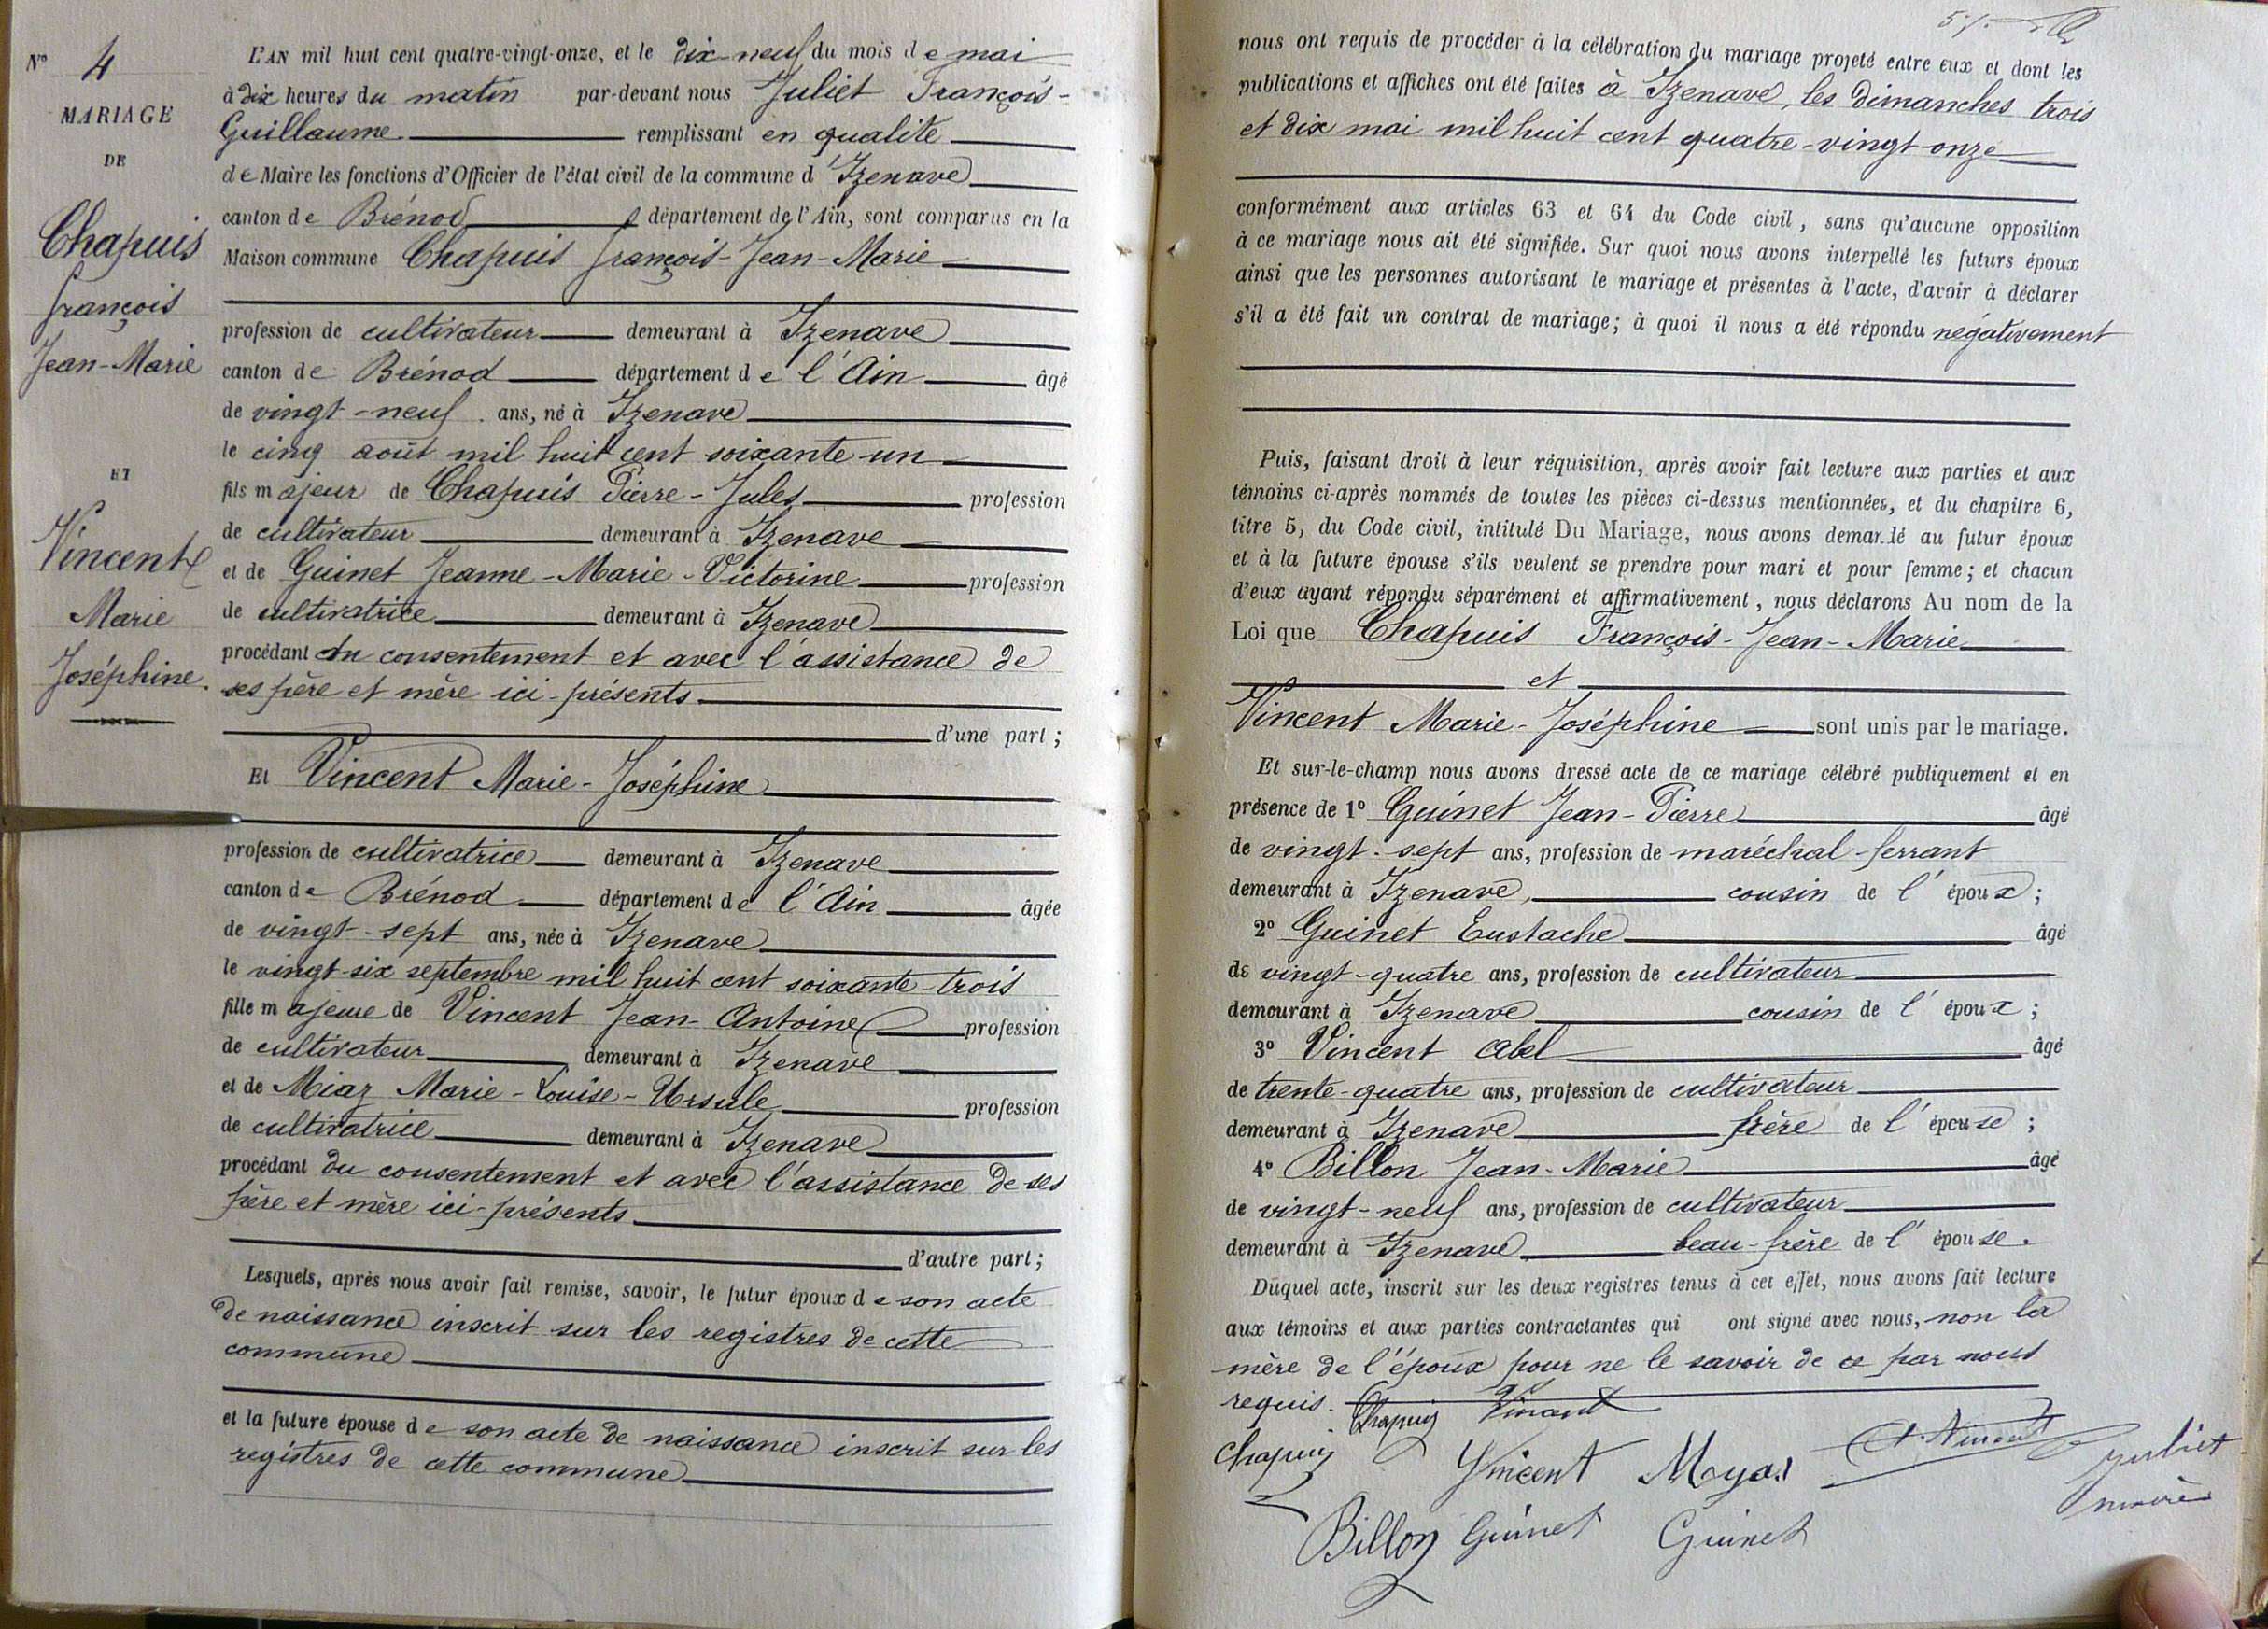 Nº 4
MARIAGE
DE
Chapuis
François
Jean-Marie
ET
Vincent
Marie
Joséphine.
L'AN mil huit cent quatre-vingt-onze, et le dix-neuf du mois de mai
à dix heures du matin par-devant nous Juliet François-
Guillaume. remplissant en qualité
de Maire les fonctions d'Officier de l'état civil de la commune d'Izenave
canton de Brénod département de l'Ain, sont comparus en la
Maison commune Chapuis François-Jean-Marie
profession de cultivateur demeurant à Izenave
canton de Brénod département de l'Ain âgé
de vingt-neuf ans, né à Izenave
le cinq août mil huit cent soixante-un
fils majeur de Chapuis Pierre-Jules profession
de cultivateur demeurant à Izenave
et de Guinet Jeanne-Marie-Victorine profession
de cultivatrice demeurant à Izenave
procédant du consentement et avec l'assistance de
ses père et mère ici-présents
d'une part;
Et Vincent Marie-Joséphine
profession de cultivatrice demeurant à Izenave
canton de Brénod département de l'Ain âgée
de vingt-sept ans, née à Izenave
le vingt-six septembre mil huit cent soixante-trois
fille majeure de Vincent Jean-Antoine profession
de cultivateur demeurant à Izenave
et de Miaz Marie-Louise-Ursule profession
de cultivatrice demeurant à Izenave
procédant du consentement et avec l'assistance de ses
père et mère ici-présents
d'autre part;
Lesquels, après nous avoir fait remise, savoir, le futur époux de son acte
de naissance inscrit sur les registres de cette
commune
et la future épouse de son acte de naissance inscrit sur les
registres de cette commune
nous ont requis de procéder à la célébration du mariage projeté entre eux et dont les
publications et affiches ont été faites à Izenave, les dimanches trois
et dix mai mil huit cent quatre-vingt-onze
conformément aux articles 63 et 64 du Code civil, sans qu'aucune opposition
à ce mariage nous ait été signifiée. Sur quoi nous avons interpellé les futurs époux
ainsi que les personnes autorisant le mariage et présentes à l'acte, d'avoir à déclarer
s'il a été fait un contrat de mariage; à quoi il nous a été répondu négativement
Puis, faisant droit à leur réquisition, après avoir fait lecture aux parties et aux
témoins ci-après nommés de toutes les pièces ci-dessus mentionnées, et du chapitre 6,
titre 5, du Code civil, intitulé Du Mariage, nous avons demandé au futur époux
et à la future épouse s'ils veulent se prendre pour mari et pour femme; et chacun
d'eux ayant répondu séparément et affirmativement, nous déclarons Au nom de la
Loi que Chapuis François-Jean-Marie
et
Vincent Marie-Joséphine sont unis par le mariage.
Et sur-le-champ nous avons dressé acte de ce mariage célébré publiquement et en
présence de 1º Guinet Jean-Pierre âgé
de vingt-sept ans, profession de maréchal-ferrant
demeurant à Izenave, cousin de l'époux;
2º Guinet Eustache âgé
de vingt-quatre ans, profession de cultivateur
demeurant à Izenave cousin de l'époux;
3º Vincent Abel âgé
de trente-quatre ans, profession de cultivateur
demeurant à Izenave frère de l'épouse;
4º Billon Jean-Marie âgé
de vingt-neuf ans, profession de cultivateur
demeurant à Izenave beau-frère de l'épouse.
Duquel acte, inscrit sur les deux registres tenus à cet effet, nous avons fait lecture
aux témoins et aux parties contractantes qui ont signé avec nous, non la
mère de l'époux pour ne le savoir de ce par nous
requis. Chapuis Vincent
Chapuis Vincent A. Vincent Juliet
maire
Billon Guinet Guinet